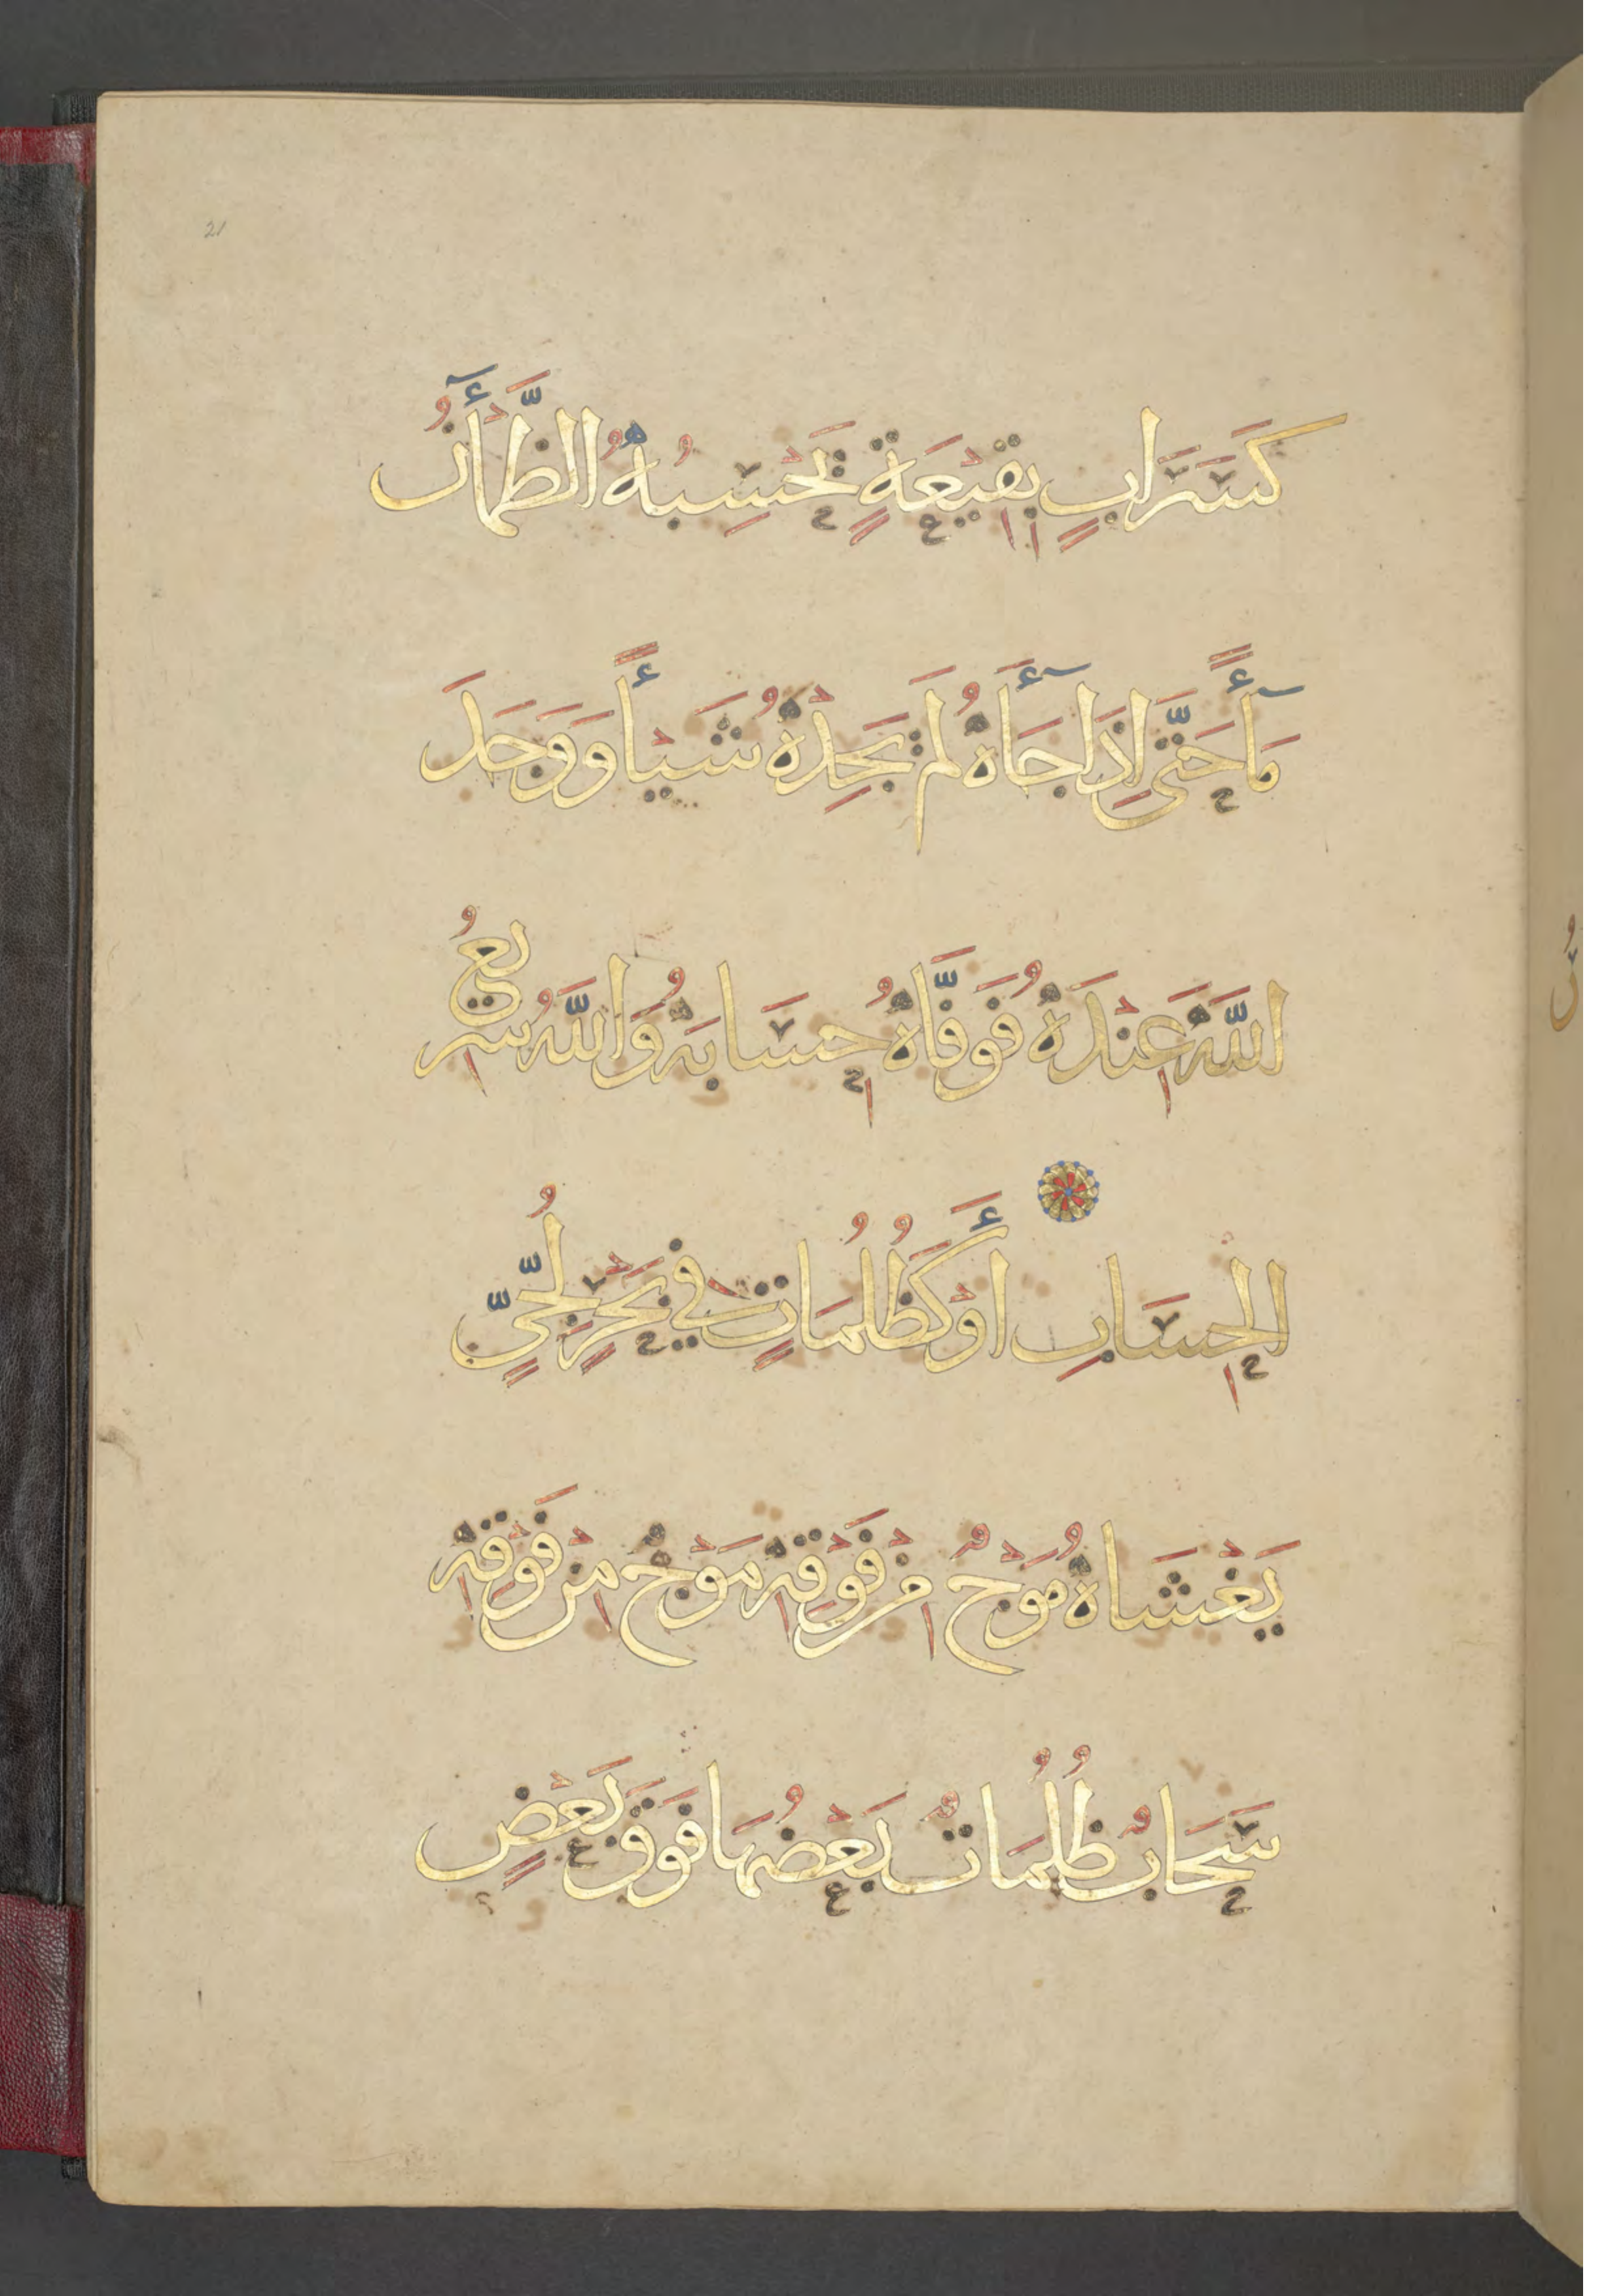 21
كَسَرَابٍ بِقِيْعَةٍ يَحْسِبُهُ الظَّمْأٓنُ
مَآءً حَتَّى إِذَا جَآءَهُ لَمْ يَجِدْهُ شَيْأً وَوَجَدَ
اللَّهَ عِنْدَهُ فَوَفَّاهُ حِسَابَهُ وَاللَّهُ سَرِيعُ
الحِسَابِ أَوْ كَظُلُمَاتٍ فِي بَحْرٍ لُجِّيٍّ
يَغْشَاهُ مَوْجٌ مِنْ فَوْقِهِ مَوْجٌ مِنْ فَوْقِهِ
سَحَابٌ ظُلُمَاتٌ بَعْضُهَا فَوْقَ بَعْضٍ